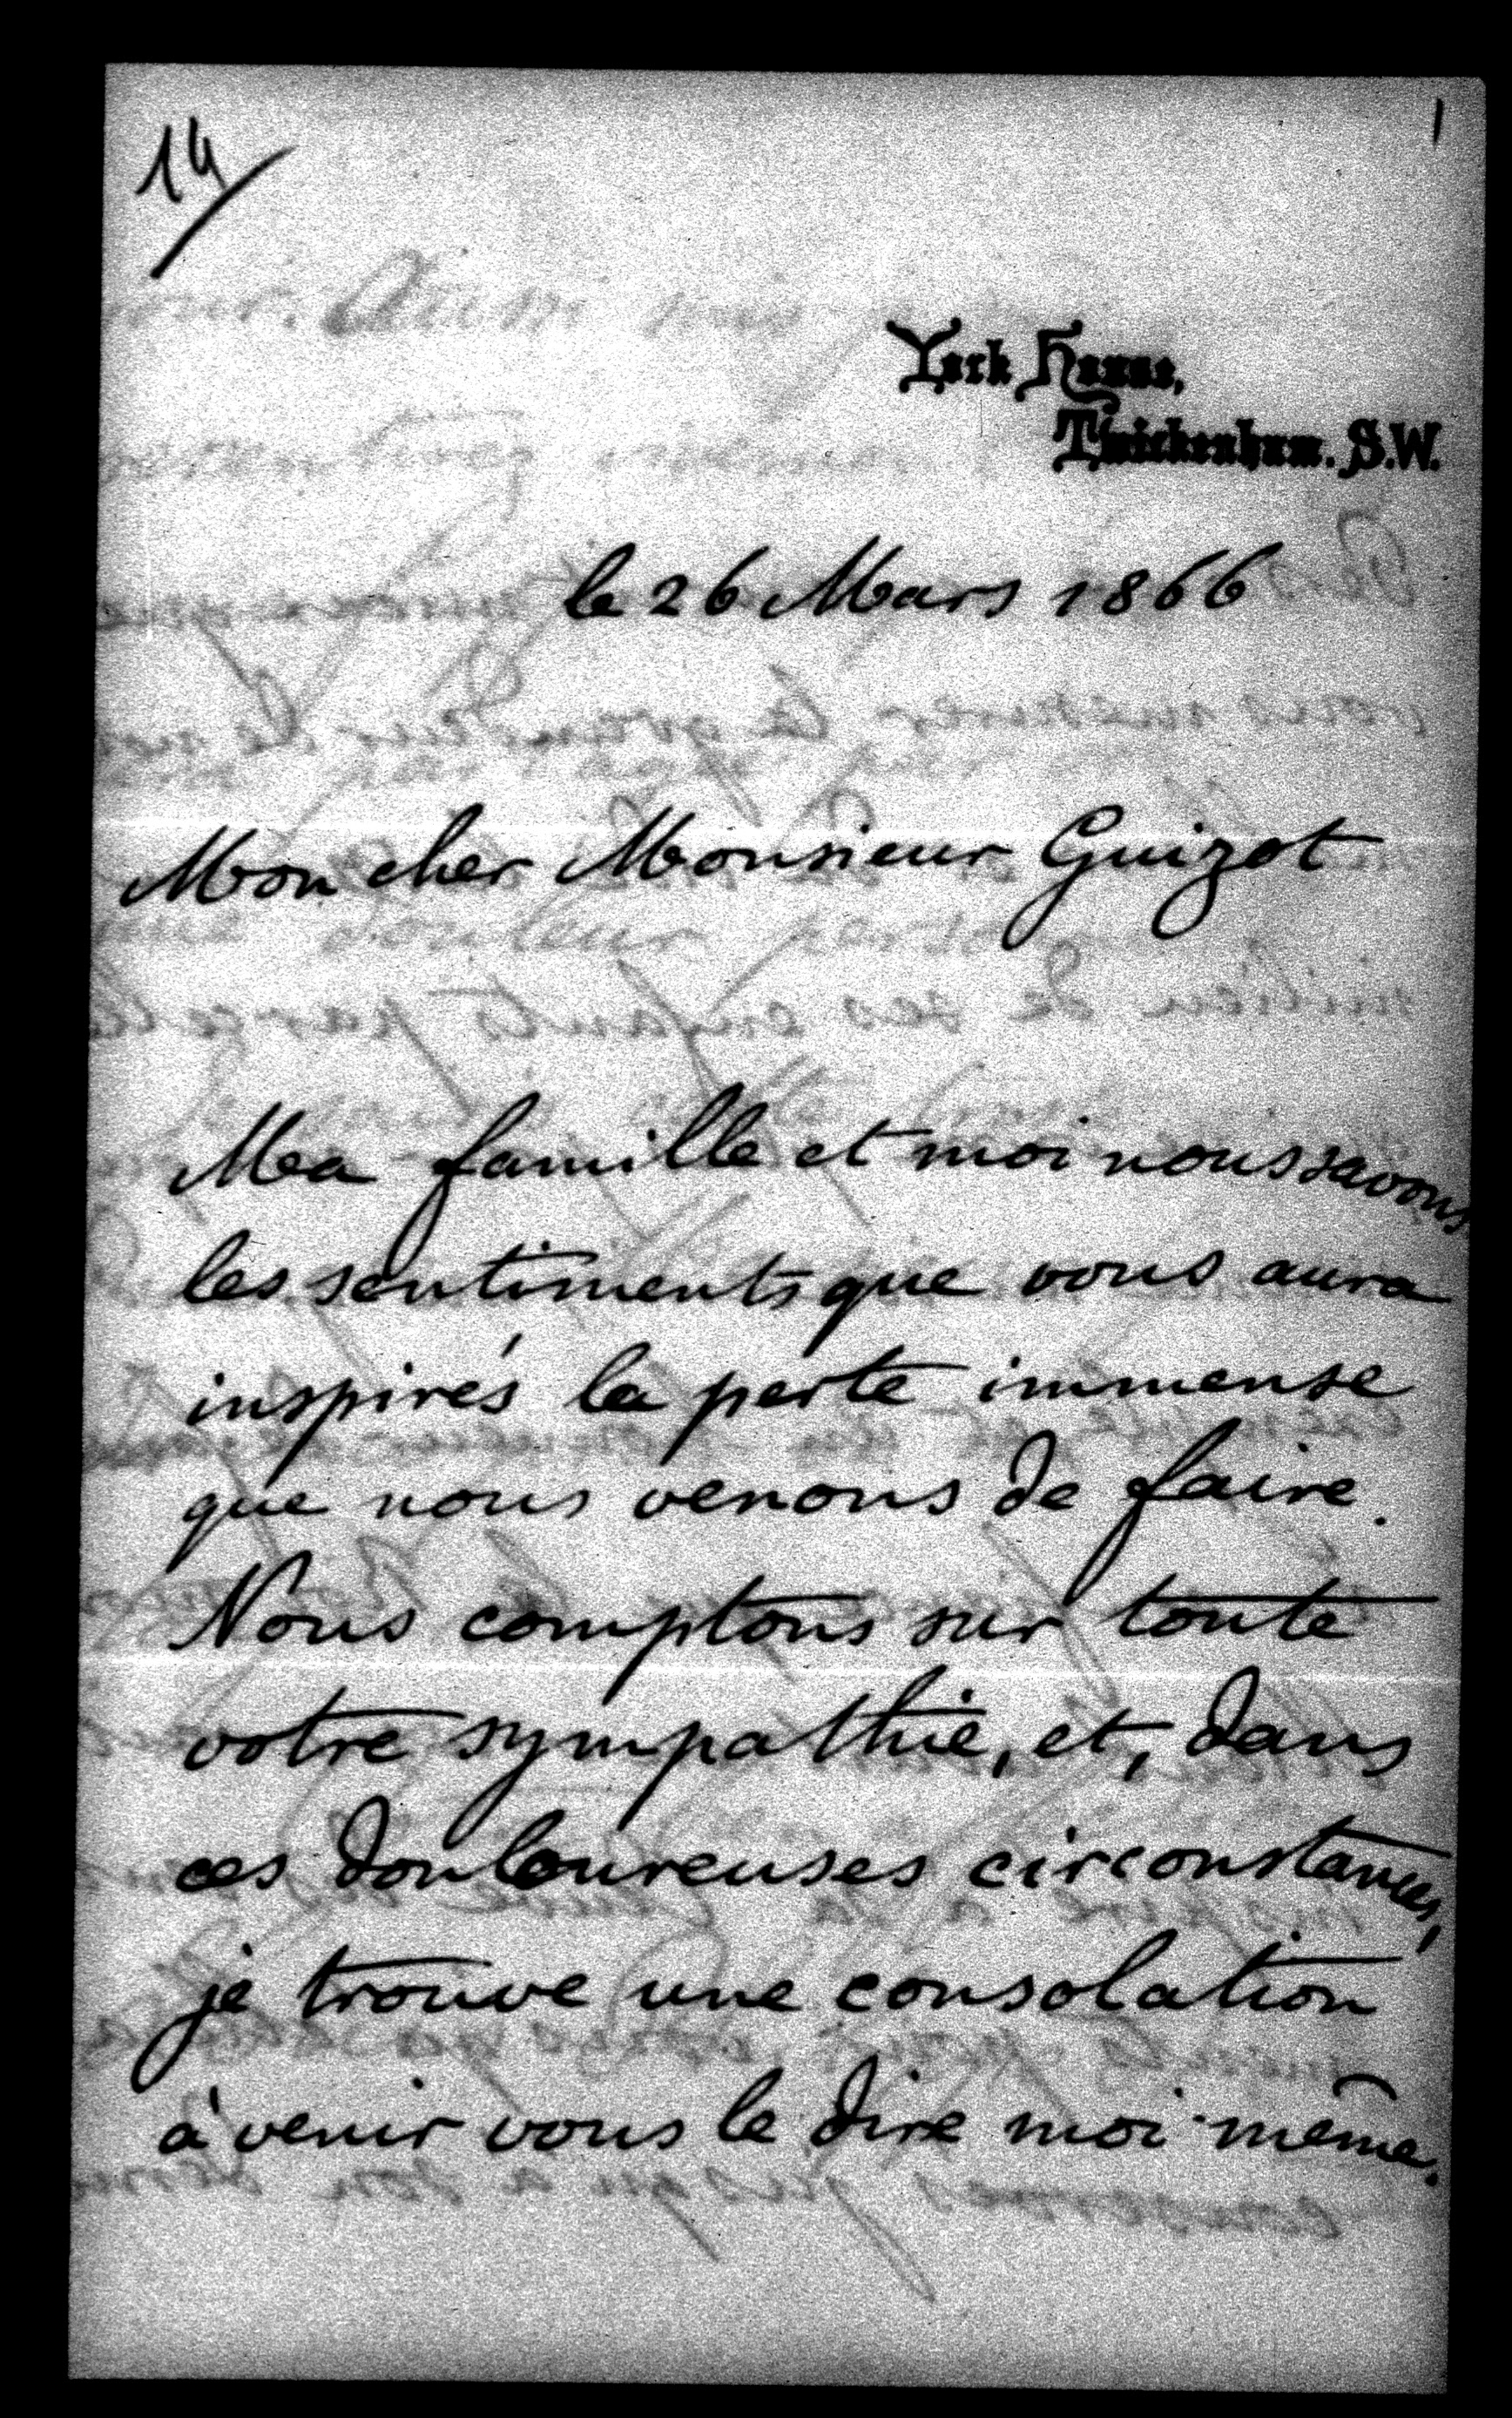 14
1
York House,
Twickenham. S.W.
le 26 Mars 1866
Mon cher Monsieur Guizot
Ma famille et moi nous savons
les sentiments que vous aura
inspirés la perte immense
que nous venons de faire.
Nous comptons sur toute
votre sympathie, et, dans
ces douloureuses circonstances,
je trouve une consolation
à venir vous le dire moi-même.